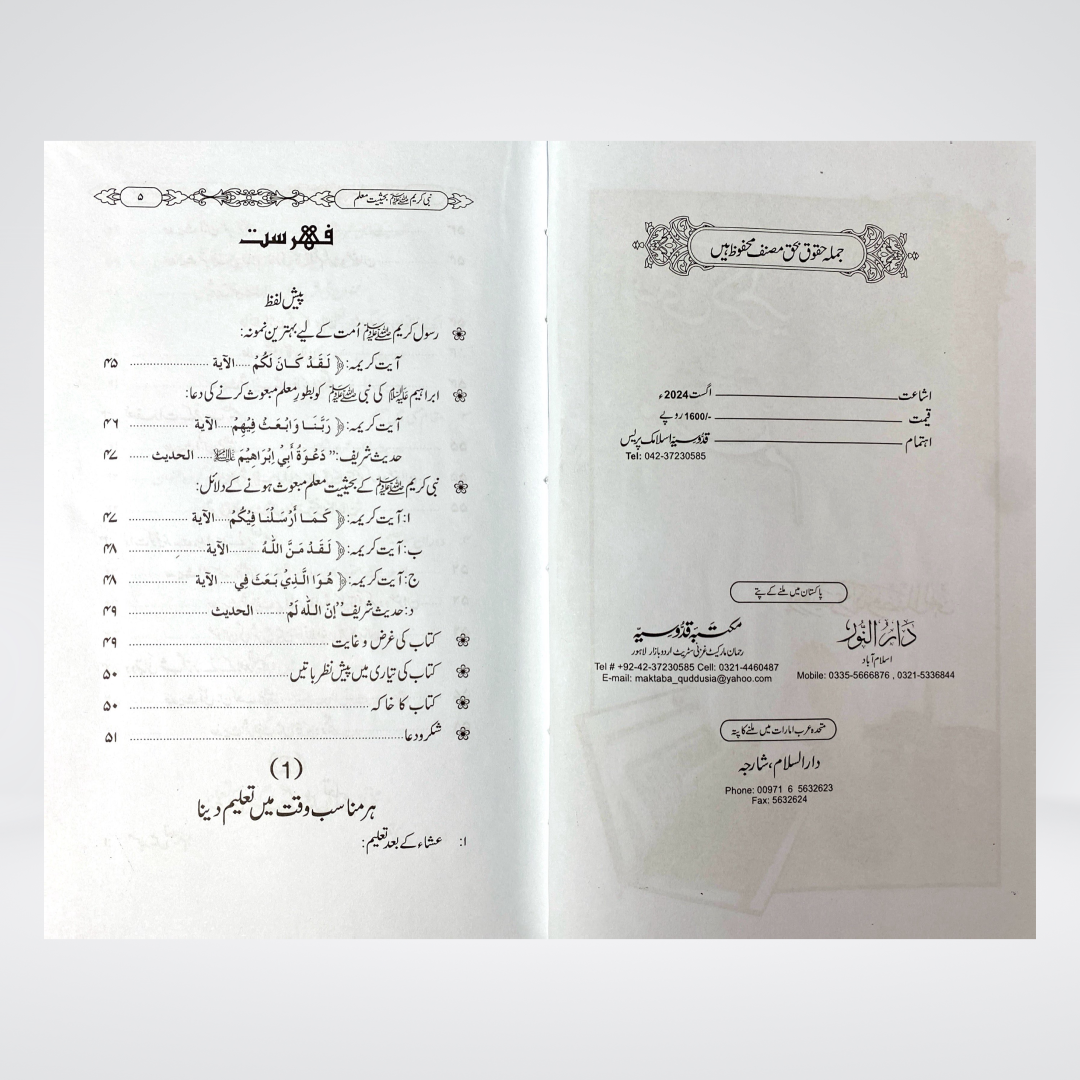 جملہ حقوق بحق مصنف محفوظ ہیں
اشاعت ــــــــــ اگست 2024ء
قیمت ــــــــــ 1600/- روپے
اہتمام ــــــــــ قدوسیہ اسلامک پریس
Tel: 042-37230585
پاکستان میں ملنے کے پتے
دَارُ النُّور
اسلام آباد
Mobile: 0335-5666876 , 0321-5336844
مکتبہ قدوسیہ
رحمان مارکیٹ غزنی سٹریٹ اردو بازار لاہور
Tel # +92-42-37230585 Cell: 0321-4460487
E-mail: maktaba_quddusia@yahoo.com
متحدہ عرب امارات میں ملنے کا پتہ
دارالسلام، شارجہ
Phone: 00971 6 5632623
Fax: 5632624
نبی کریم ﷺ بحیثیت معلم
۵
فہرست
پیش لفظ
رسول کریم ﷺ اُمت کے لیے بہترین نمونہ:
آیت کریمہ: ﴿ لَقَدْ كَانَ لَكُمْ ..... الآية ..... ۴۵
ابراہیم علیہ السلام کی نبی ﷺ کو بطور معلم مبعوث کرنے کی دعا:
آیت کریمہ: ﴿ رَبَّنَا وَابْعَثْ فِيْهِمْ ..... الآية ..... ۴۶
حدیث شریف: ”دَعْوَةُ أَبِيْ إِبْرَاهِيْمَ علیہ السلام ..... الحديث ..... ۴۷
نبی کریم ﷺ کے بحیثیت معلم مبعوث ہونے کے دلائل:
ا: آیت کریمہ: ﴿ كَمَا أَرْسَلْنَا فِيْكُمْ ..... الآية ..... ۴۷
ب: آیت کریمہ: ﴿ لَقَدْ مَنَّ اللّٰهُ ..... الآية ..... ۴۸
ج: آیت کریمہ: ﴿ هُوَ الَّذِيْ بَعَثَ فِي ..... الآية ..... ۴۸
د: حدیث شریف ”إِنَّ اللّٰهَ لَمْ ..... الحديث ..... ۴۹
کتاب کی غرض و غایت ..... ۴۹
کتاب کی تیاری میں پیش نظر باتیں ..... ۵۰
کتاب کا خاکہ ..... ۵۰
شکر و دعا ..... ۵۱
(1)
ہر مناسب وقت میں تعلیم دینا
ا: عشاء کے بعد تعلیم: